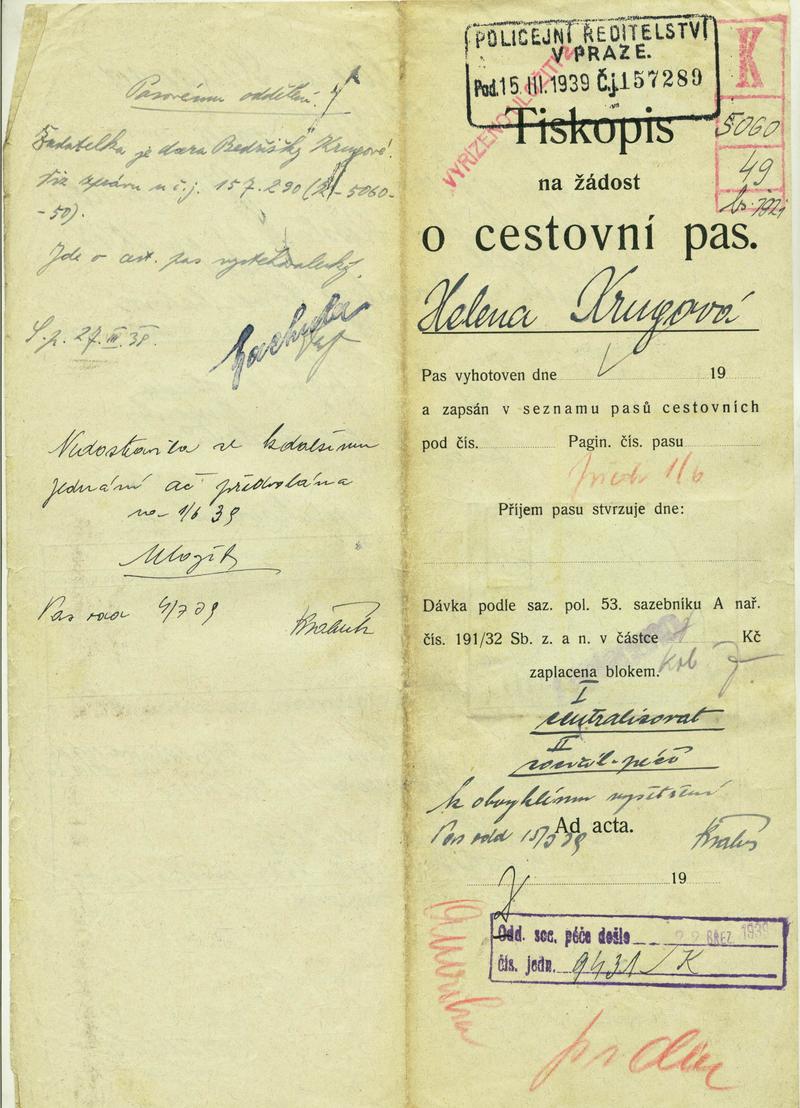 Pasovému oddělení.
Žadatelka je dcera Bedřišky Krugové.
viz zprávu u č. j. 157.290 (K-5060-
-50).
Jde o cest. pas vystěhovalecký.
27. III. 39.
Nedostavila se k dalšímu
jednání ač předvolána
na 1/6 39
Uložit
Pas odd 4/7 39
POLICEJNÍ ŘEDITELSTVÍ
V PRAZE.
Pod. 15. III. 1939 Č.j. 157289
VYŘÍZENO ULOŽIT
K
5060
49
1921
Tiskopis
na žádost
o cestovní pas.
Helena Krugová
Pas vyhotoven dne 19
a zapsán v seznamu pasů cestovních
pod čís. Pagin. čís. pasu
1/6
Příjem pasu stvrzuje dne:
Dávka podle saz. pol. 53. sazebníku A nař.
čís. 191/32 Sb. z. a n. v částce Kč
zaplacena blokem.
I
centralisovat
II
sociál. péče
k obvyklému vyšetření
Ad acta.
Pas odd 15/3 39
19
Odd. soc. péče došlo 22 BŘEZ. 1939
čís. jedn. 9431/K